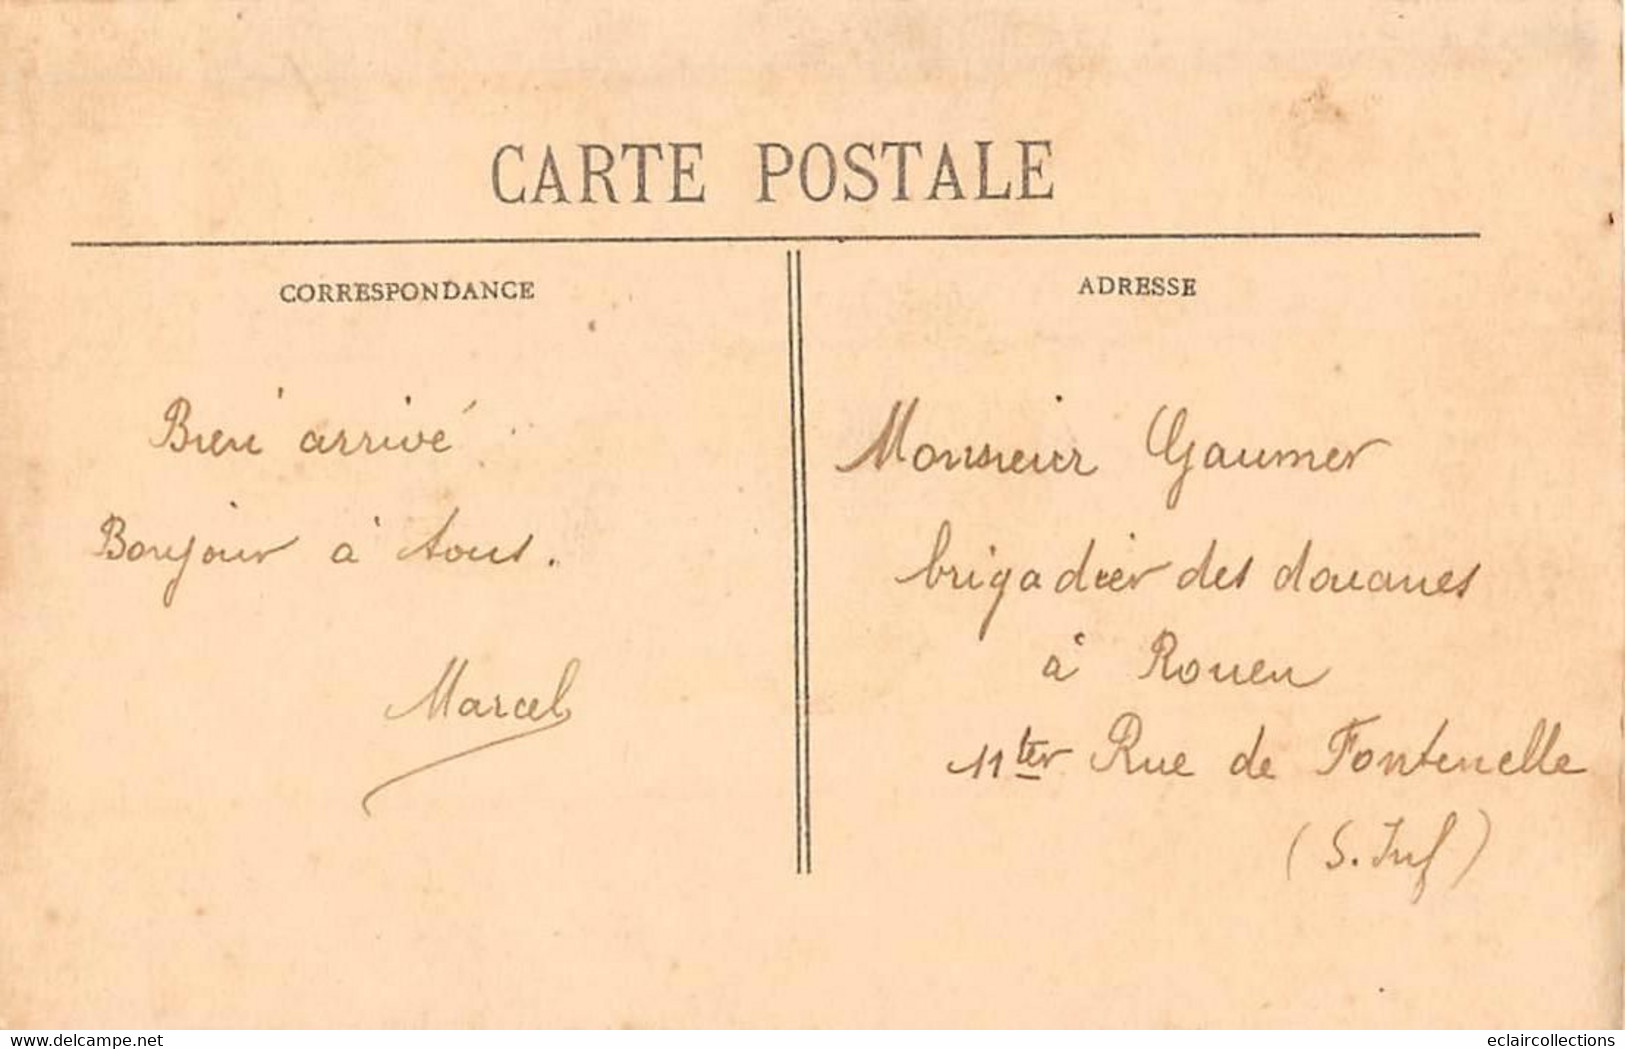 CARTE POSTALE
CORRESPONDANCE
Bien arrivé
Bonjour à tous.
Marcel
ADRESSE
Monsieur Gaumer
brigadier des douanes
à Rouen
11ter Rue de Fontenelle
(S. Inf)
delcampe.net
eclaircollections